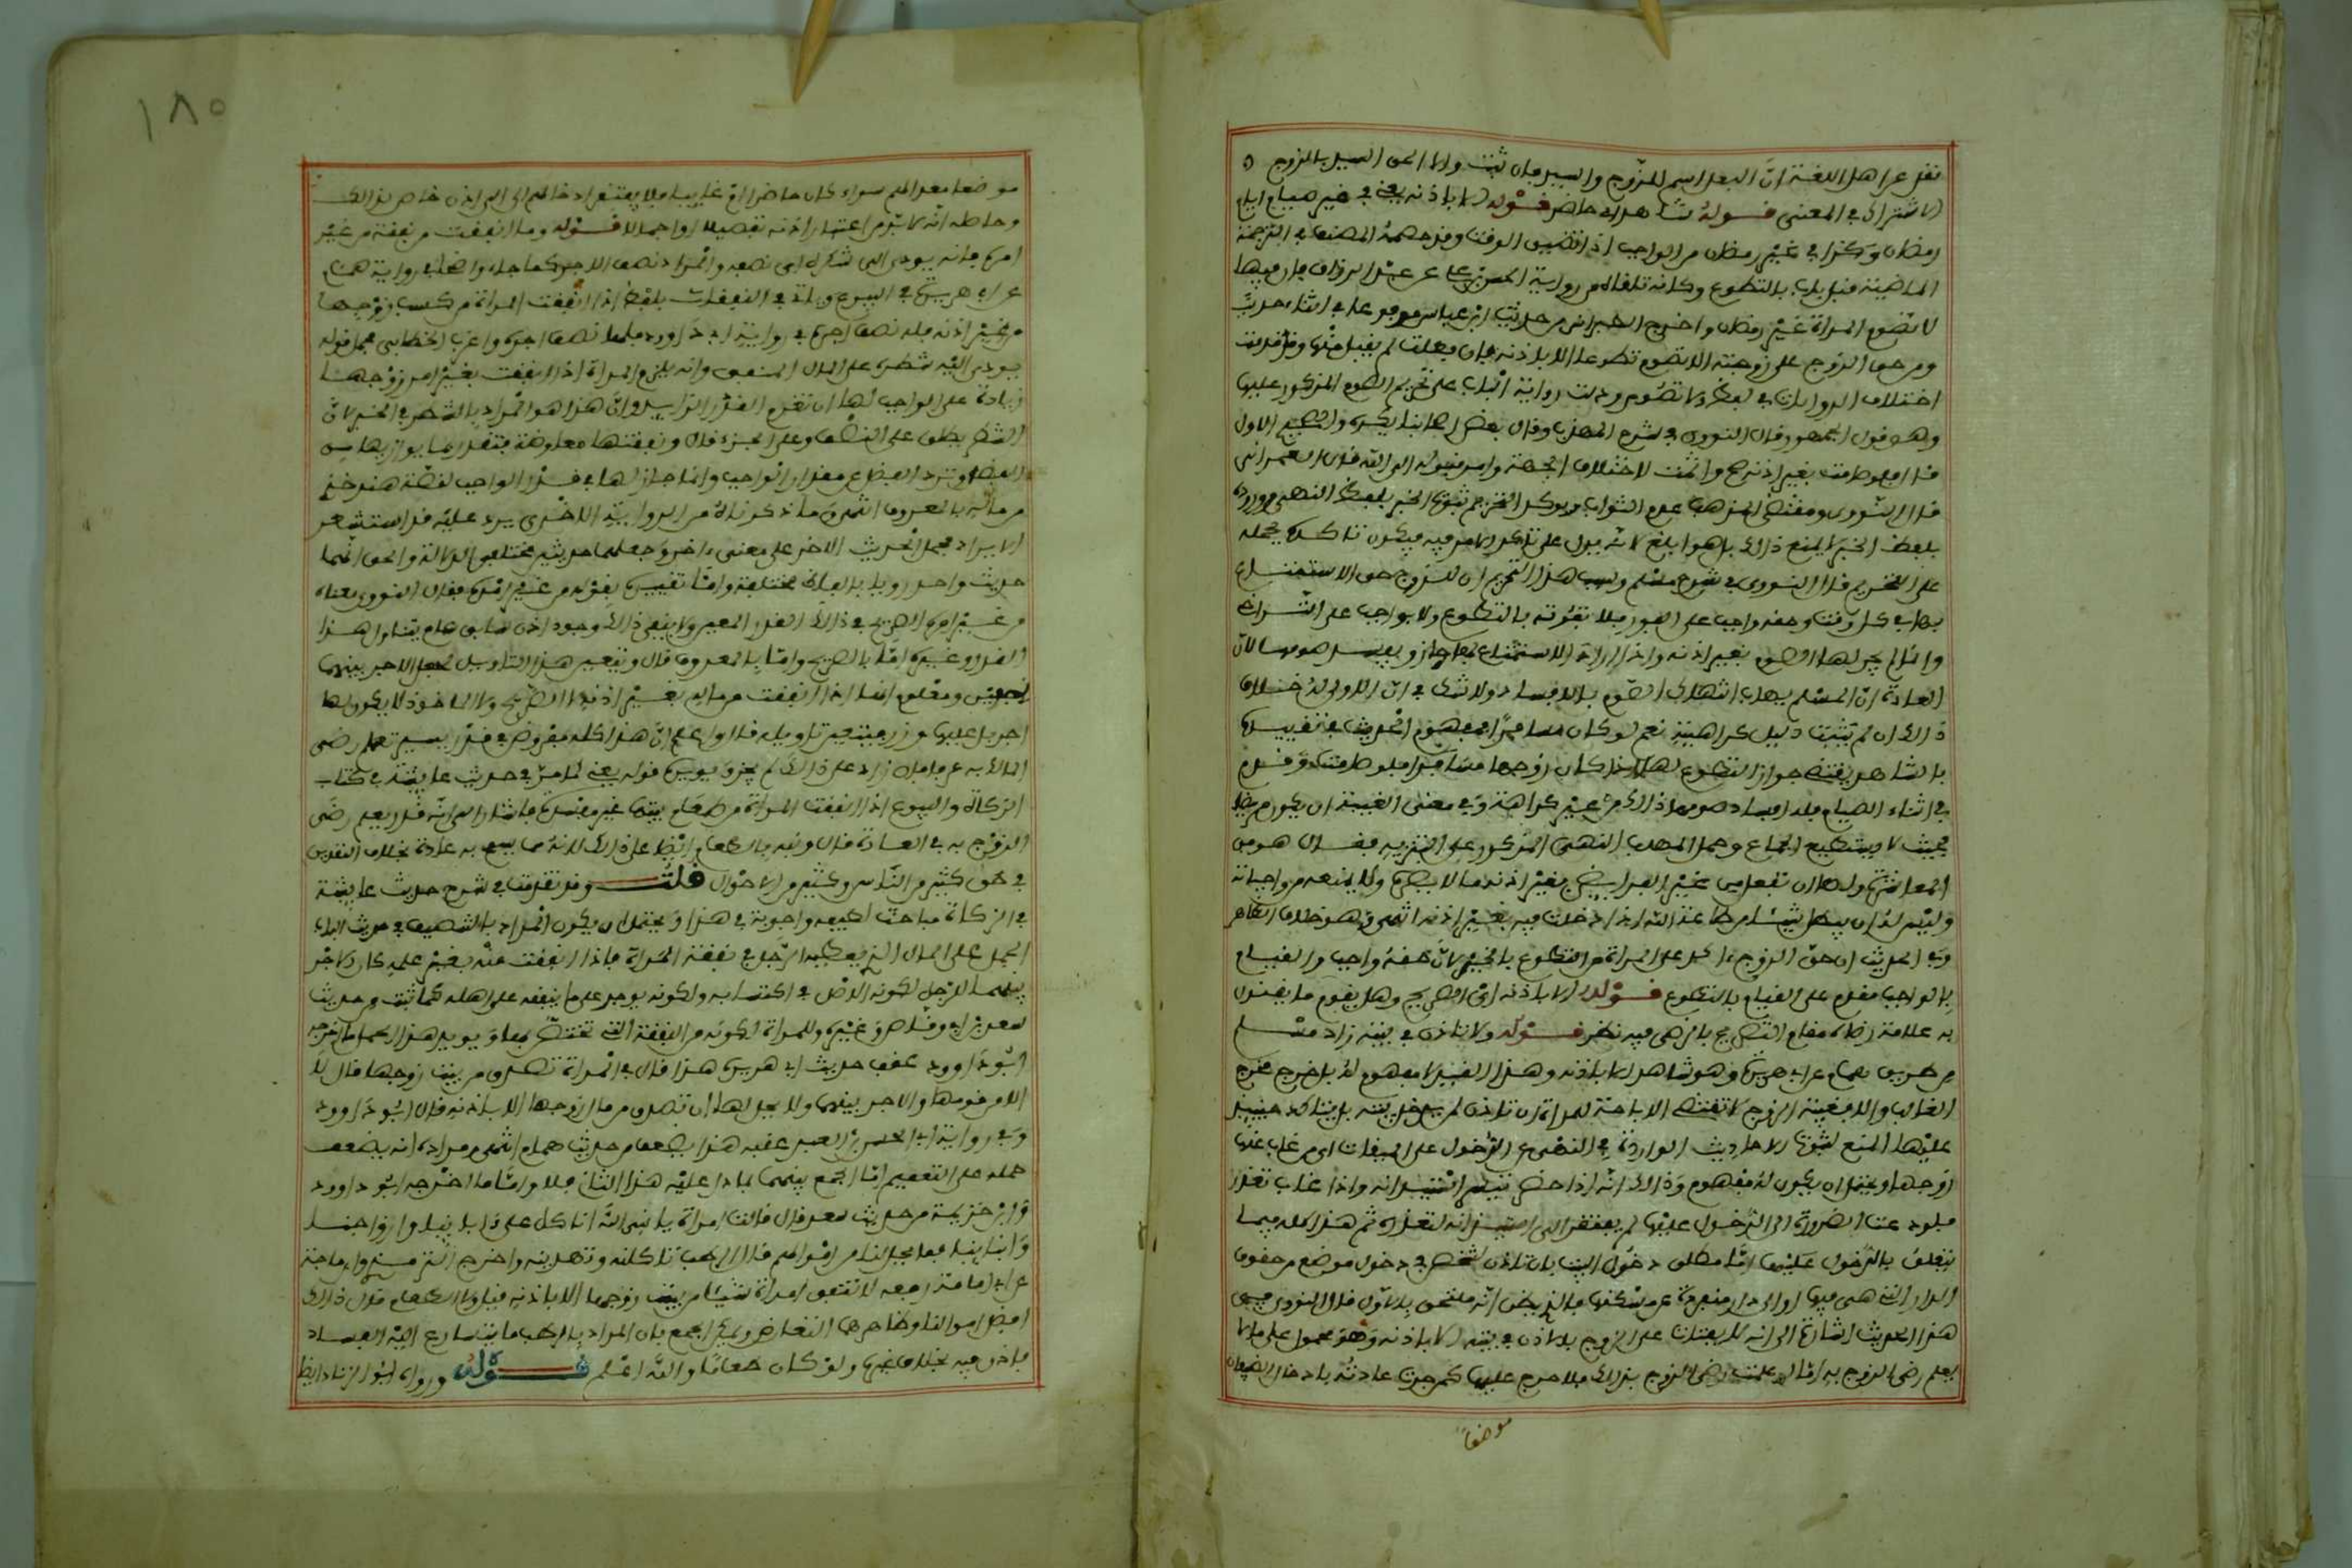 نقل عن اهل اللغة ان البعل اسم للزوج والسيد فان ثبت والا الحق السيد بالزوج
للاشتراك في المعنى قوله شاهد اي حاضر قوله الا باذنه يعني في غير صيام ايام
رمضان وكذا في غير رمضان من الواجب اذا تضيق الوقت وقد خصه المصنف في الترجمة
الماضية قبل باب بالتطوع وكانه تلقاه من رواية الحسن بن علي عن عبد الرزاق فان فيها
لا تصوم المراة غير رمضان واخرج الطبراني من حديث ابن عباس مرفوعا في اثناء حديث
ومن حق الزوج على زوجته الا تصوم تطوعا الا باذنه فان فعلت لم يقبل منها وقد قدمت
اختلاف الروايات في لفظ ولا تصوم ودلت رواية الباب على تحريم الصوم المذكور عليها
وهو قول الجمهور قال النووي في شرح المهذب وقال بعض اصحابنا يكره والصحيح الاول
قال فلو صامت بغير اذنه صح واثمت لاختلاف الجهة وامر قبوله الى الله قاله العمراني
قال النووي ومقتضى المذهب عدم الثواب ويوكد التحريم ثبوت الخبر بلفظ النهي ووروده
بلفظ الخبر لا يمنع ذلك بل هو ابلغ لانه يدل على تاكد الامر فيه فيكون تاكده بحمله
على التحريم قال النووي في شرح مسلم وسبب هذا التحريم ان للزوج حق الاستمتاع
بها في كل وقت وحقه واجب على الفور فلا يفوته بالتطوع ولا بواجب على التراخي
وانما لم يجز لها الصوم بغير اذنه واذا اراد الاستمتاع بها جاز ويفسد صومها لان
العادة ان المسلم يهاب انتهاك الصوم بالافساد ولا شك في ان الاولى له خلاف
ذلك ان لم يثبت دليل كراهيته نعم لو كان مسافرا فمفهوم الحديث في تقييده
بالشاهد يقتضي جواز التطوع لها اذا كان زوجها مسافرا فلو صامت وقدم
في اثناء الصيام فله افساد صومها ذلك من غير كراهة وفي معنى الغيبة ان يكون مريضا
بحيث لا يستطيع الجماع وحمل المهلب النهي المذكور على التنزيه فقال هو من
المعاشرة ولها ان تفعل من غير الفرايض بغير اذنه ما لا يضره ولا يمنعه من واجباته
وليس له ان يبطل شيئا من طاعة الله اذا دخلت فيه بغير اذنه انتهى وهو خلاف الظاهر
وفي الحديث ان حق الزوج اكد على المراة من التطوع بالخير لان حقه واجب والقيام
بالواجب مقدم على القيام بالتطوع قوله الا باذنه اي الصريح وهل يقوم ما يقترن
به علامة رضاه مقام التصريح بالرضى فيه نظر قوله ولا تاذن في بيته زاد مسلم
من طريق همام عن ابي هريرة وهو شاهد الا باذنه وهذا القيد لا مفهوم له بل خرج مخرج
الغالب والا فغيبة الزوج لا تقتضي الاباحة للمراة ان تاذن لمن يدخل بيته بل يتاكد حينيذ
عليها المنع لثبوت الاحاديث الواردة في النهي عن الدخول على المغيبات اي من غاب عنها
زوجها ويحتمل ان يكون له مفهوم وذلك انه اذا حضر تيسر استيذانه واذا غاب تعذر
فلو دعت الضرورة الى الدخول عليها لم يفتقر الى استيذانه لتعذره ثم هذا كله فيما
يتعلق بالدخول عليها اما مطلق دخول البيت بان تاذن لشخص في دخول موضع من حقوق
الدار التي هي فيها او الى دار منفردة عن مسكنها فالذي يظهر انه ملتحق بالاول قال النووي في
هذا الحديث اشارة الى انه لا يفتات على الزوج بالاذن في بيته الا باذنه وهو محمول على ما لا
يعلم رضى الزوج به اما لو علمت رضى الزوج بذلك فلا حرج عليها كمن جرت عادته بادخال الضيفان
موضعا
١٨٥
موضعا معدا لهم سواء كان حاضرا ام غايبا فلا يفتقر ادخالهم الى اذن خاص بذلك
وحاصله انه لا بد من اعتبار اذنه تفصيلا او اجمالا قوله وما انفقت من نفقة من غير
امره فانه يودى اليه شطره اي نصفه والمراد نصف الاجر كما جاء واضحا في رواية همام
عن ابي هريرة في البيوع وياتي في النفقات بلفظ اذا انفقت المراة من كسب زوجها
من غير اذنه فله نصف اجره في رواية ابي داوود فلها نصف اجره واغرب الخطابي فحمل قوله
يودى اليه شطره على المال المنفق وانه يلزم المراة اذا انفقت بغير امر زوجها
زيادة على الواجب لها ان تغرم القدر الزايد وان هذا هو المراد بالشطر في الخبر لان
الشطر يطلق على النصف وعلى الجزء قال ونفقتها معاوضة فتقدر بما يوازيها من
الفرض وترد الفضل عن مقدار الواجب وانما جاز لها في قدر الواجب لقصة هند خذي
من ماله بالمعروف انتهى وما ذكرناه من الرواية الاخرى يرد عليه قد استشعر
الايراد فحمل الحديث الاخر على معنى اخر وجعلهما حديثين مختلفي الدلالة والحق انهما
حديث واحد رويا بالفاظ مختلفة واما تقييده بقوله من غير امره فقال النووي معناه
من غير امره الصريح في ذلك القدر المعين ولا ينفي ذلك وجود اذن سابق عام يتناول هذا
القدر وغيره اما بالصريح واما بالمعروف قال ويتعين هذا التاويل لجعل الاجر بينهما
نصفين ومعلوم انها اذا انفقت من ماله بغير اذنه لا الصريح ولا الماخوذ لا يكون لها
اجر بل عليها وزر فيتعين تاويله قال واعلم ان هذا كله مفروض في قدر يسير تعلم رضى
المالك به عرفا فان زاد على ذلك لم يجز ويويده قوله يعني كما مر في حديث عايشة في كتاب
الزكاة والبيوع اذا انفقت المراة من طعام بيتها غير مفسدة فاشار الى انه قدر يعلم رضى
الزوج به في العادة قال ونبه بالطعام ايضا على ذلك لانه مما يسمح به عادة بخلاف النقدين
في حق كثير من الناس وكثير من الاحوال قلت وقد تقدمت في شرح حديث عايشة
في الزكاة مباحث لطيفة واجوبة في هذا ويحتمل ان يكون المراد بالتنصيف في حديث الباب
الحمل على المال الذي يعطيه الرجل في نفقة المراة فاذا انفقت منه بغير علمه كان الاجر
بينهما للرجل لكونه الاصل في اكتسابه ولكونه يوجر على ما ينفقه على اهله كما ثبت من حديث
سعد بن ابي وقاص وغيره وللمراة لكونه من النفقة التي تختص بها ويويد هذا الحمل ما اخرجه
ابو داوود عقب حديث ابي هريرة هذا قال في المراة تصدق من بيت زوجها قال لا
الا من قوتها والاجر بينهما ولا يحل لها ان تصدق من مال زوجها الا باذنه قال ابو داوود
وفي رواية ابي الحسن بن العبد عقبه هذا يضعف حديث همام انتهى ومراده انه يضعف
حمله على التعميم اما الجمع بينهما بما دل عليه هذا الثاني فلا واما ما اخرجه ابو داوود
وابن خزيمة من حديث سعد قال قالت امراة يا نبي الله انا كل على ابائنا وازواجنا
وابناينا فما يحل لنا من اموالهم قال الرطب تاكلنه وتهدينه واخرج الترمذي وابن ماجة
عن ابي امامة رفعه لا تنفق امراة شيئا من بيت زوجها الا باذنه قيل ولا الطعام قال ذلك
افضل اموالنا وظاهرهما التعارض ويمكن الجمع بان المراد بالرطب ما يتسارع اليه الفساد
فاذن فيه بخلاف غيره ولو كان طعاما والله اعلم قوله ورواه ابو الزناد ايضا